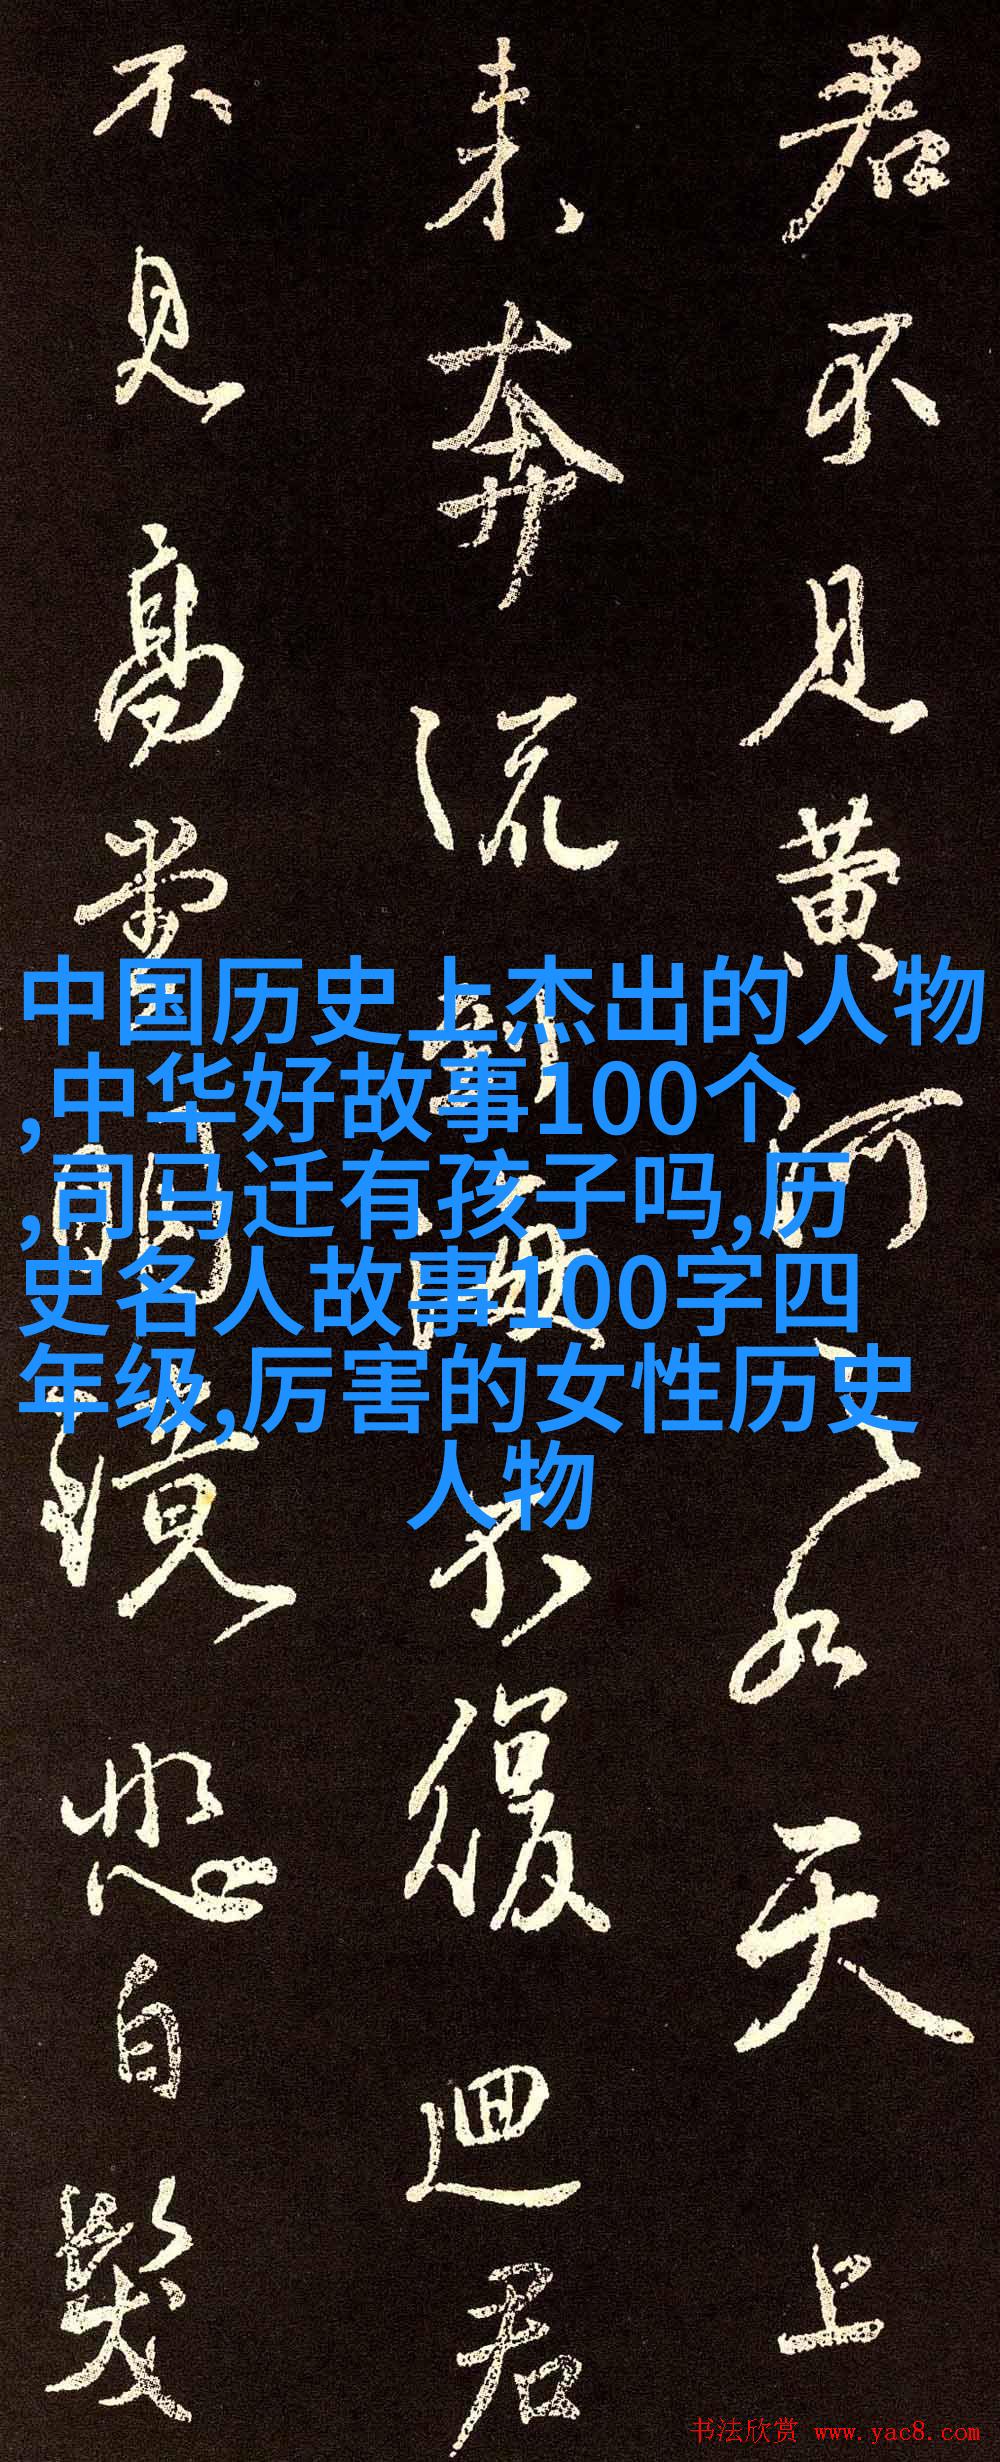 君不見黄河之水天上
来奔流到海不復迴君
不見高堂明鏡悲白髮
中国历史上杰出的人物
,中华好故事100个
,司马迁有孩子吗,历
史名人故事100字四
年级,厉害的女性历史
人物
书法欣赏 www.yac8.com